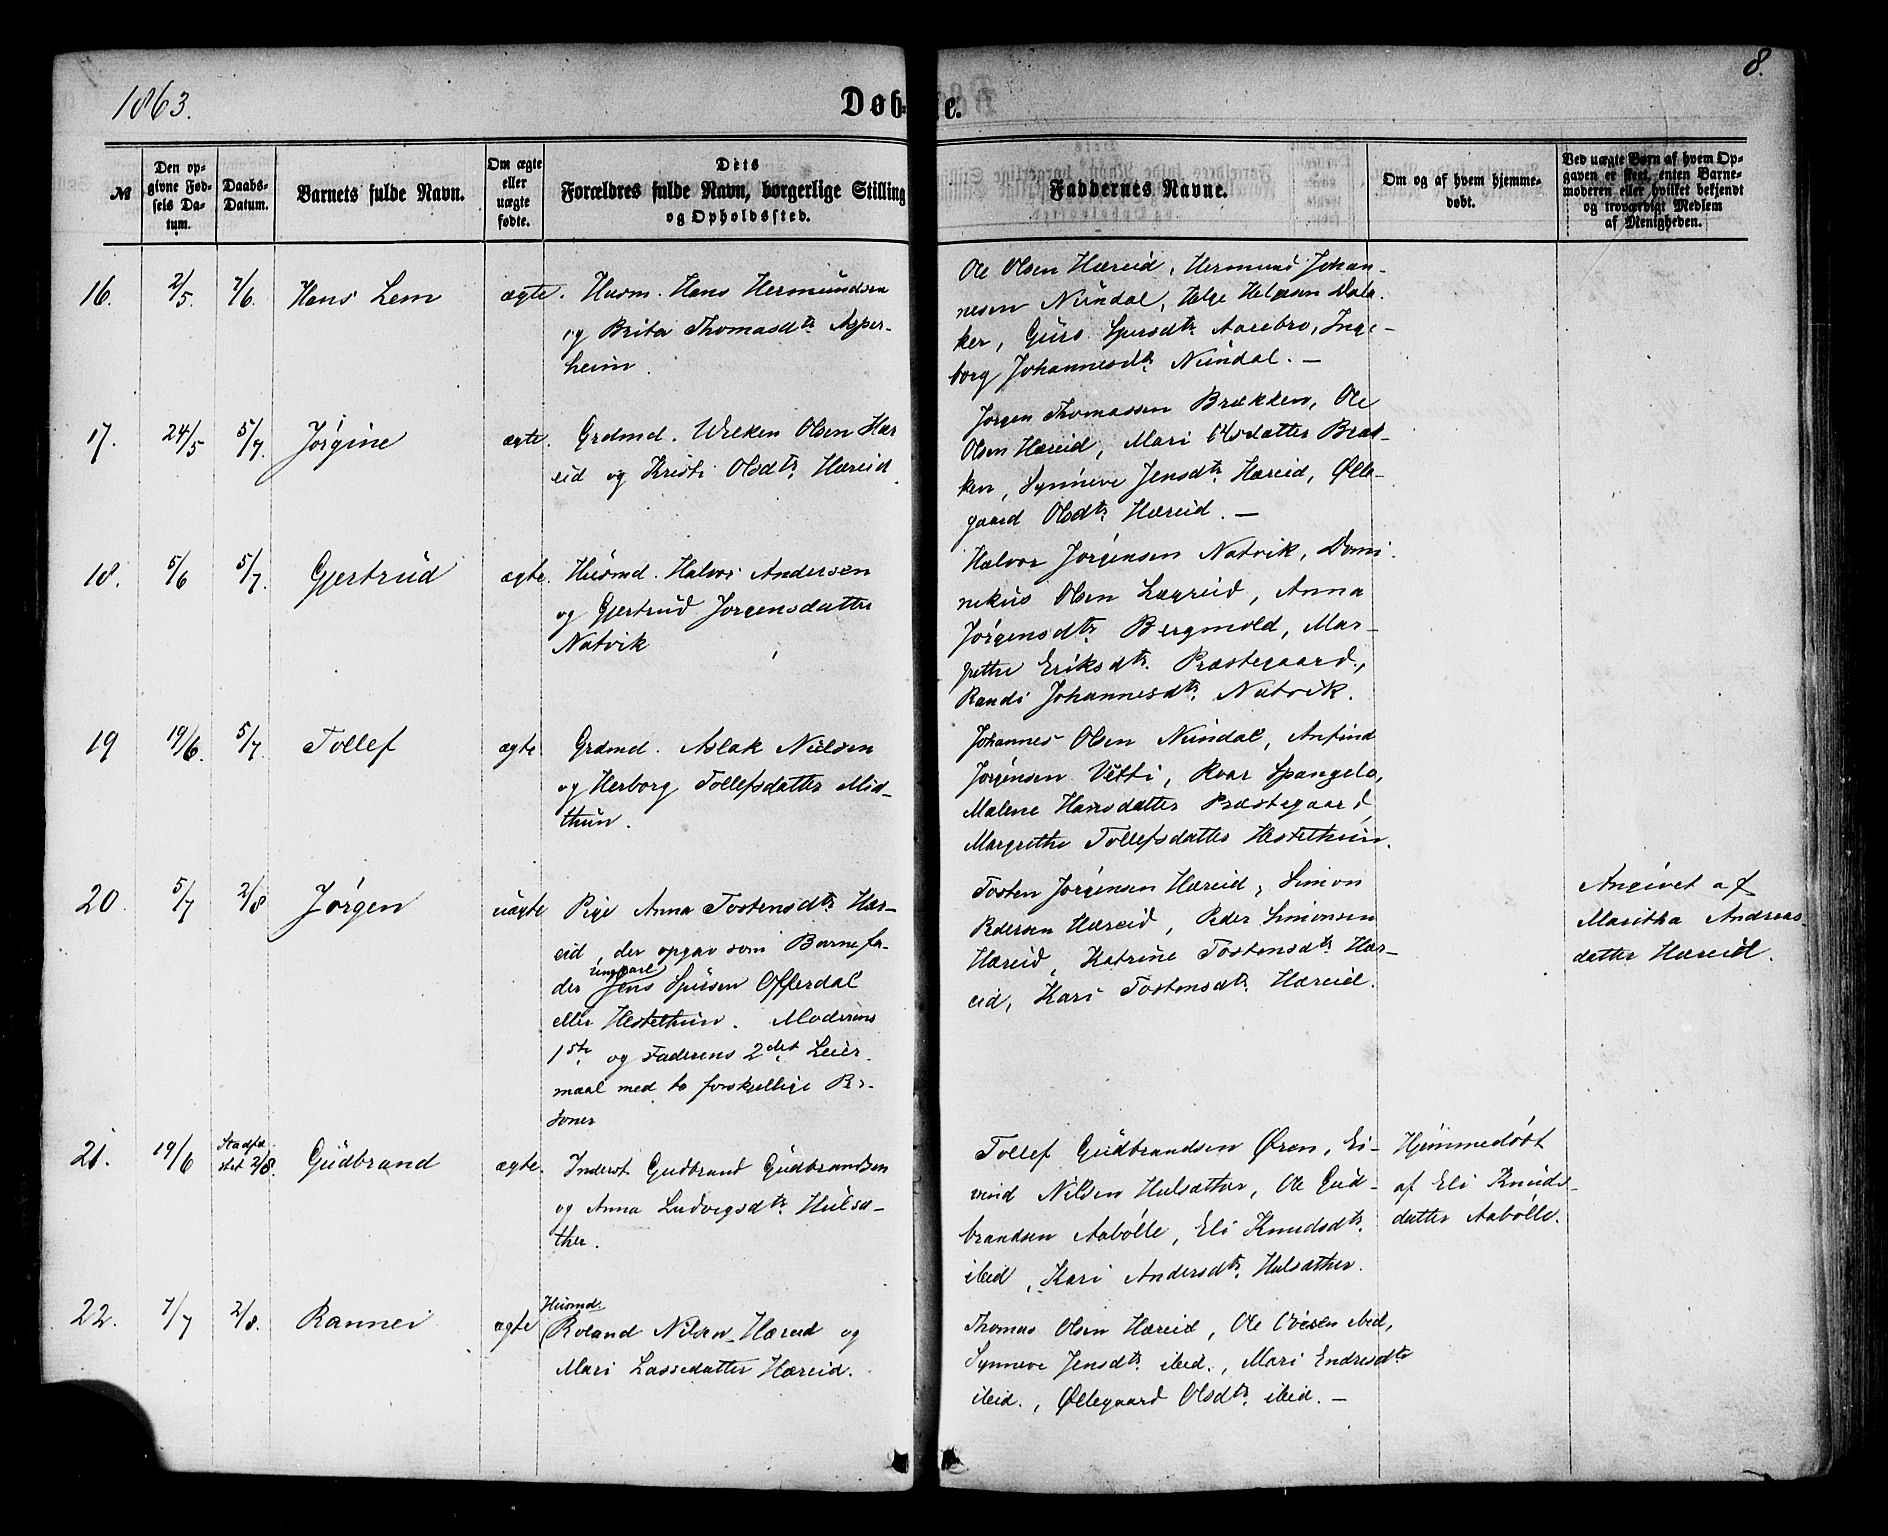 1863.
Døb-
te.
8.
№
Den op-
givne Fød-
sels Da-
tum.
Daabs-
Datum.
Barnets fulde Navn.
Om ægte
eller
uægte
fødte.
Dets
Forældres fulde Navn, borgerlige Stilling
og Opholdssted.
Faddernes Navne.
Om og af hvem hjemme-
døbt.
Ved uægte Børn af hvem Op-
gaven er skeet, enten Barne-
moderen eller hvilket bekjendt
og troværdigt Medlem
af Menigheden.
16.
2/5.
7/6.
Hans Lem
ægte.
Husm. Hans Hermundsen
og Brita Thomasdtr Asper-
heim.
Ole Olsen Hæreid, Hermund Johan-
nesen Nundal, Helge Helgesen Dala-
ker, Guro Spersdtr Aarebro, Inge-
borg Johannesdtr Nundal. —
17.
24/5
5/7.
Jørgine
ægte.
Grdmd. Wilken Olsen Hær
eid og Kristi Olsdtr Hæreid
Jørgen Thomassen Brækken, Ole
Olsen Hæreid, Mari Olsdatter Bræk-
ken, Synneve Jensdtr Hæreid, Ølle-
gaard Olsdtr Hæreid. —
18.
5/6
5/7.
Gjertrud
ægte.
Husmd. Halvor Andersen
og Gjertrud Jørgensdatter
Natvik
Halvor Jørgensen Natvik, Domi-
nikus Olsen Lægreid, Anna
Jørgensdtr Bergmold, Mar-
grethe Eriksdtr Præstegaard,
Randi Johannesdtr Natvik.
19
19/6.
5/7.
Tollef
ægte.
Grdmd. Aslak Nielsen
og Herborg Tollefsdatter Mid-
thun.
Johannes Olsen Nundal, Anfind
Jørgensen Vetti, Roar Spangelo,
Malene Hansdatter Præstegaard
Margrethe Tollefsdatter Hestethun.
20.
5/7
2/8
Jørgen
uægte
Pige Anna Tostensdtr Hær-
eid, der opgav som Barnefa-
der ungkarl Jens Spersen Offerdal
eller Hestethun. Moderens
1ste og Faderens 2det Leier-
maal med to forskjellige Per-
soner
Tosten Jørgensen Hæreid, Simon
Pedersen Hæreid, Peder Simonsen
Hæreid, Katrine Tostensdtr Hær-
eid, Kari Tostensdtr Hæreid.
Angivet af
Maritha Andreas-
datter Hæreid.
21.
19/6
Stadfæ-
stet 2/8.
Gudbrand
ægte.
Inderst Gudbrand Gudbrandsen
og Anna Ludvigsdtr Hulsæ-
ther.
Tollef Gudbrandsen Øren, Ei-
vind Nilsen Hulsæther, Ole Gud-
brandsen Aabølle, Eli Knudsdtr
ibid, Kari Andersdtr Hulsæther.
Hjemmedøbt
af Eli Knuds-
datter Aabølle.
22.
1/7
2/8.
Rannei
ægte
Husmd
Roland Nilsen Hæreid og
Mari Lassedatter Hæreid.
Thomas Olsen Hæreid, Ole ibid,
Synneve Jensdtr ibid., Mari Endresdtr
ibid., Øllegaard Olsdtr ibid. —